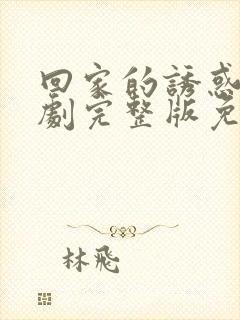 回家的誘惑
劇完整版免
林飛